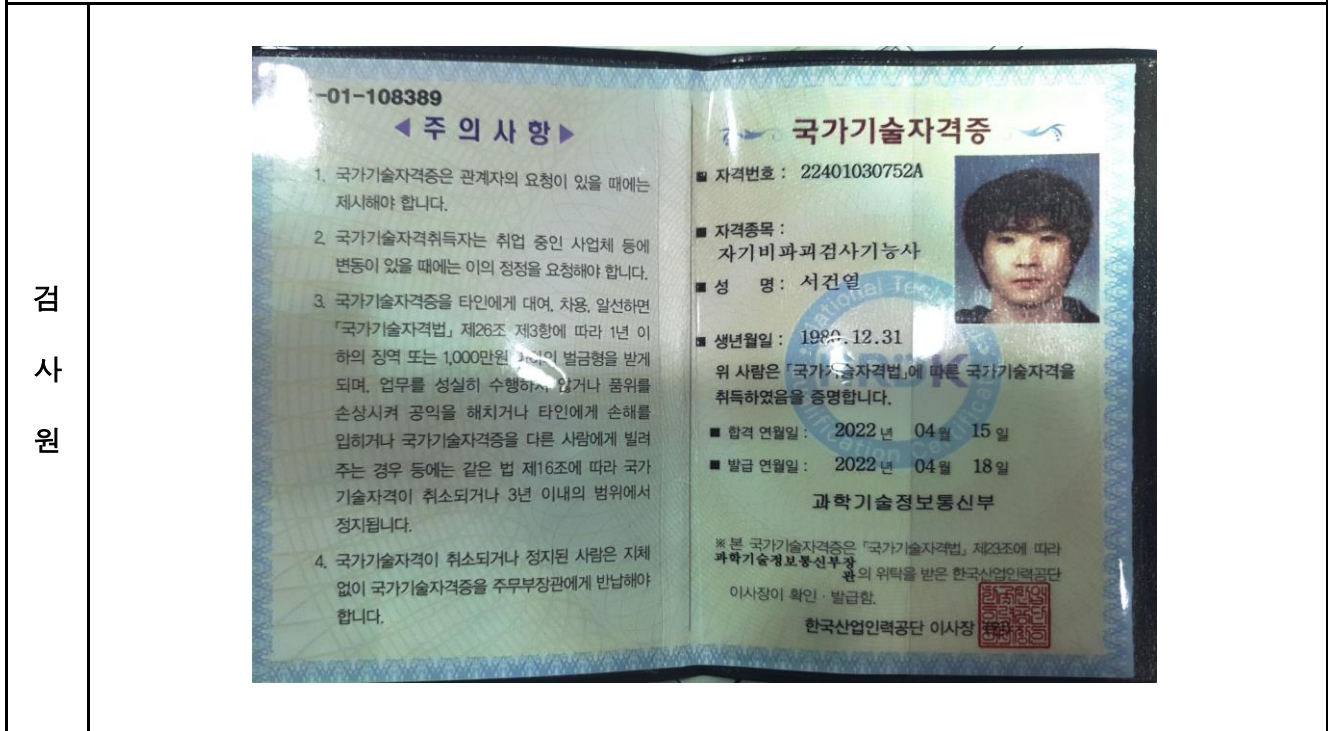 검
사
원
-01-108389
◀ 주 의 사 항 ▶
1. 국가기술자격증은 관계자의 요청이 있을 때에는
제시해야 합니다.
2. 국가기술자격취득자는 취업 중인 사업체 등에
변동이 있을 때에는 이의 정정을 요청해야 합니다.
3. 국가기술자격증을 타인에게 대여, 차용, 알선하면
「국가기술자격법」 제26조 제3항에 따라 1년 이
하의 징역 또는 1,000만원 이하의 벌금형을 받게
되며, 업무를 성실히 수행하지 않거나 품위를
손상시켜 공익을 해치거나 타인에게 손해를
입히거나 국가기술자격증을 다른 사람에게 빌려
주는 경우 등에는 같은 법 제16조에 따라 국가
기술자격이 취소되거나 3년 이내의 범위에서
정지됩니다.
4. 국가기술자격이 취소되거나 정지된 사람은 지체
없이 국가기술자격증을 주무부장관에게 반납해야
합니다.
국가기술자격증
■ 자격번호 : 22401030752A
■ 자격종목 :
자기비파괴검사기능사
■ 성 명 : 서건열
■ 생년월일 : 12.31
위 사람은 「국가기술자격법」에 따른 국가기술자격을
취득하였음을 증명합니다.
■ 합격 연월일 : 2022 년 04 월 15 일
■ 발급 연월일 : 2022 년 04 월 18 일
과학기술정보통신부
※ 본 국가기술자격증은 「국가기술자격법」 제23조에 따라
과학기술정보통신부장
관의 위탁을 받은 한국산업인력공단
이사장이 확인 · 발급함.
한국산업인력공단 이사장